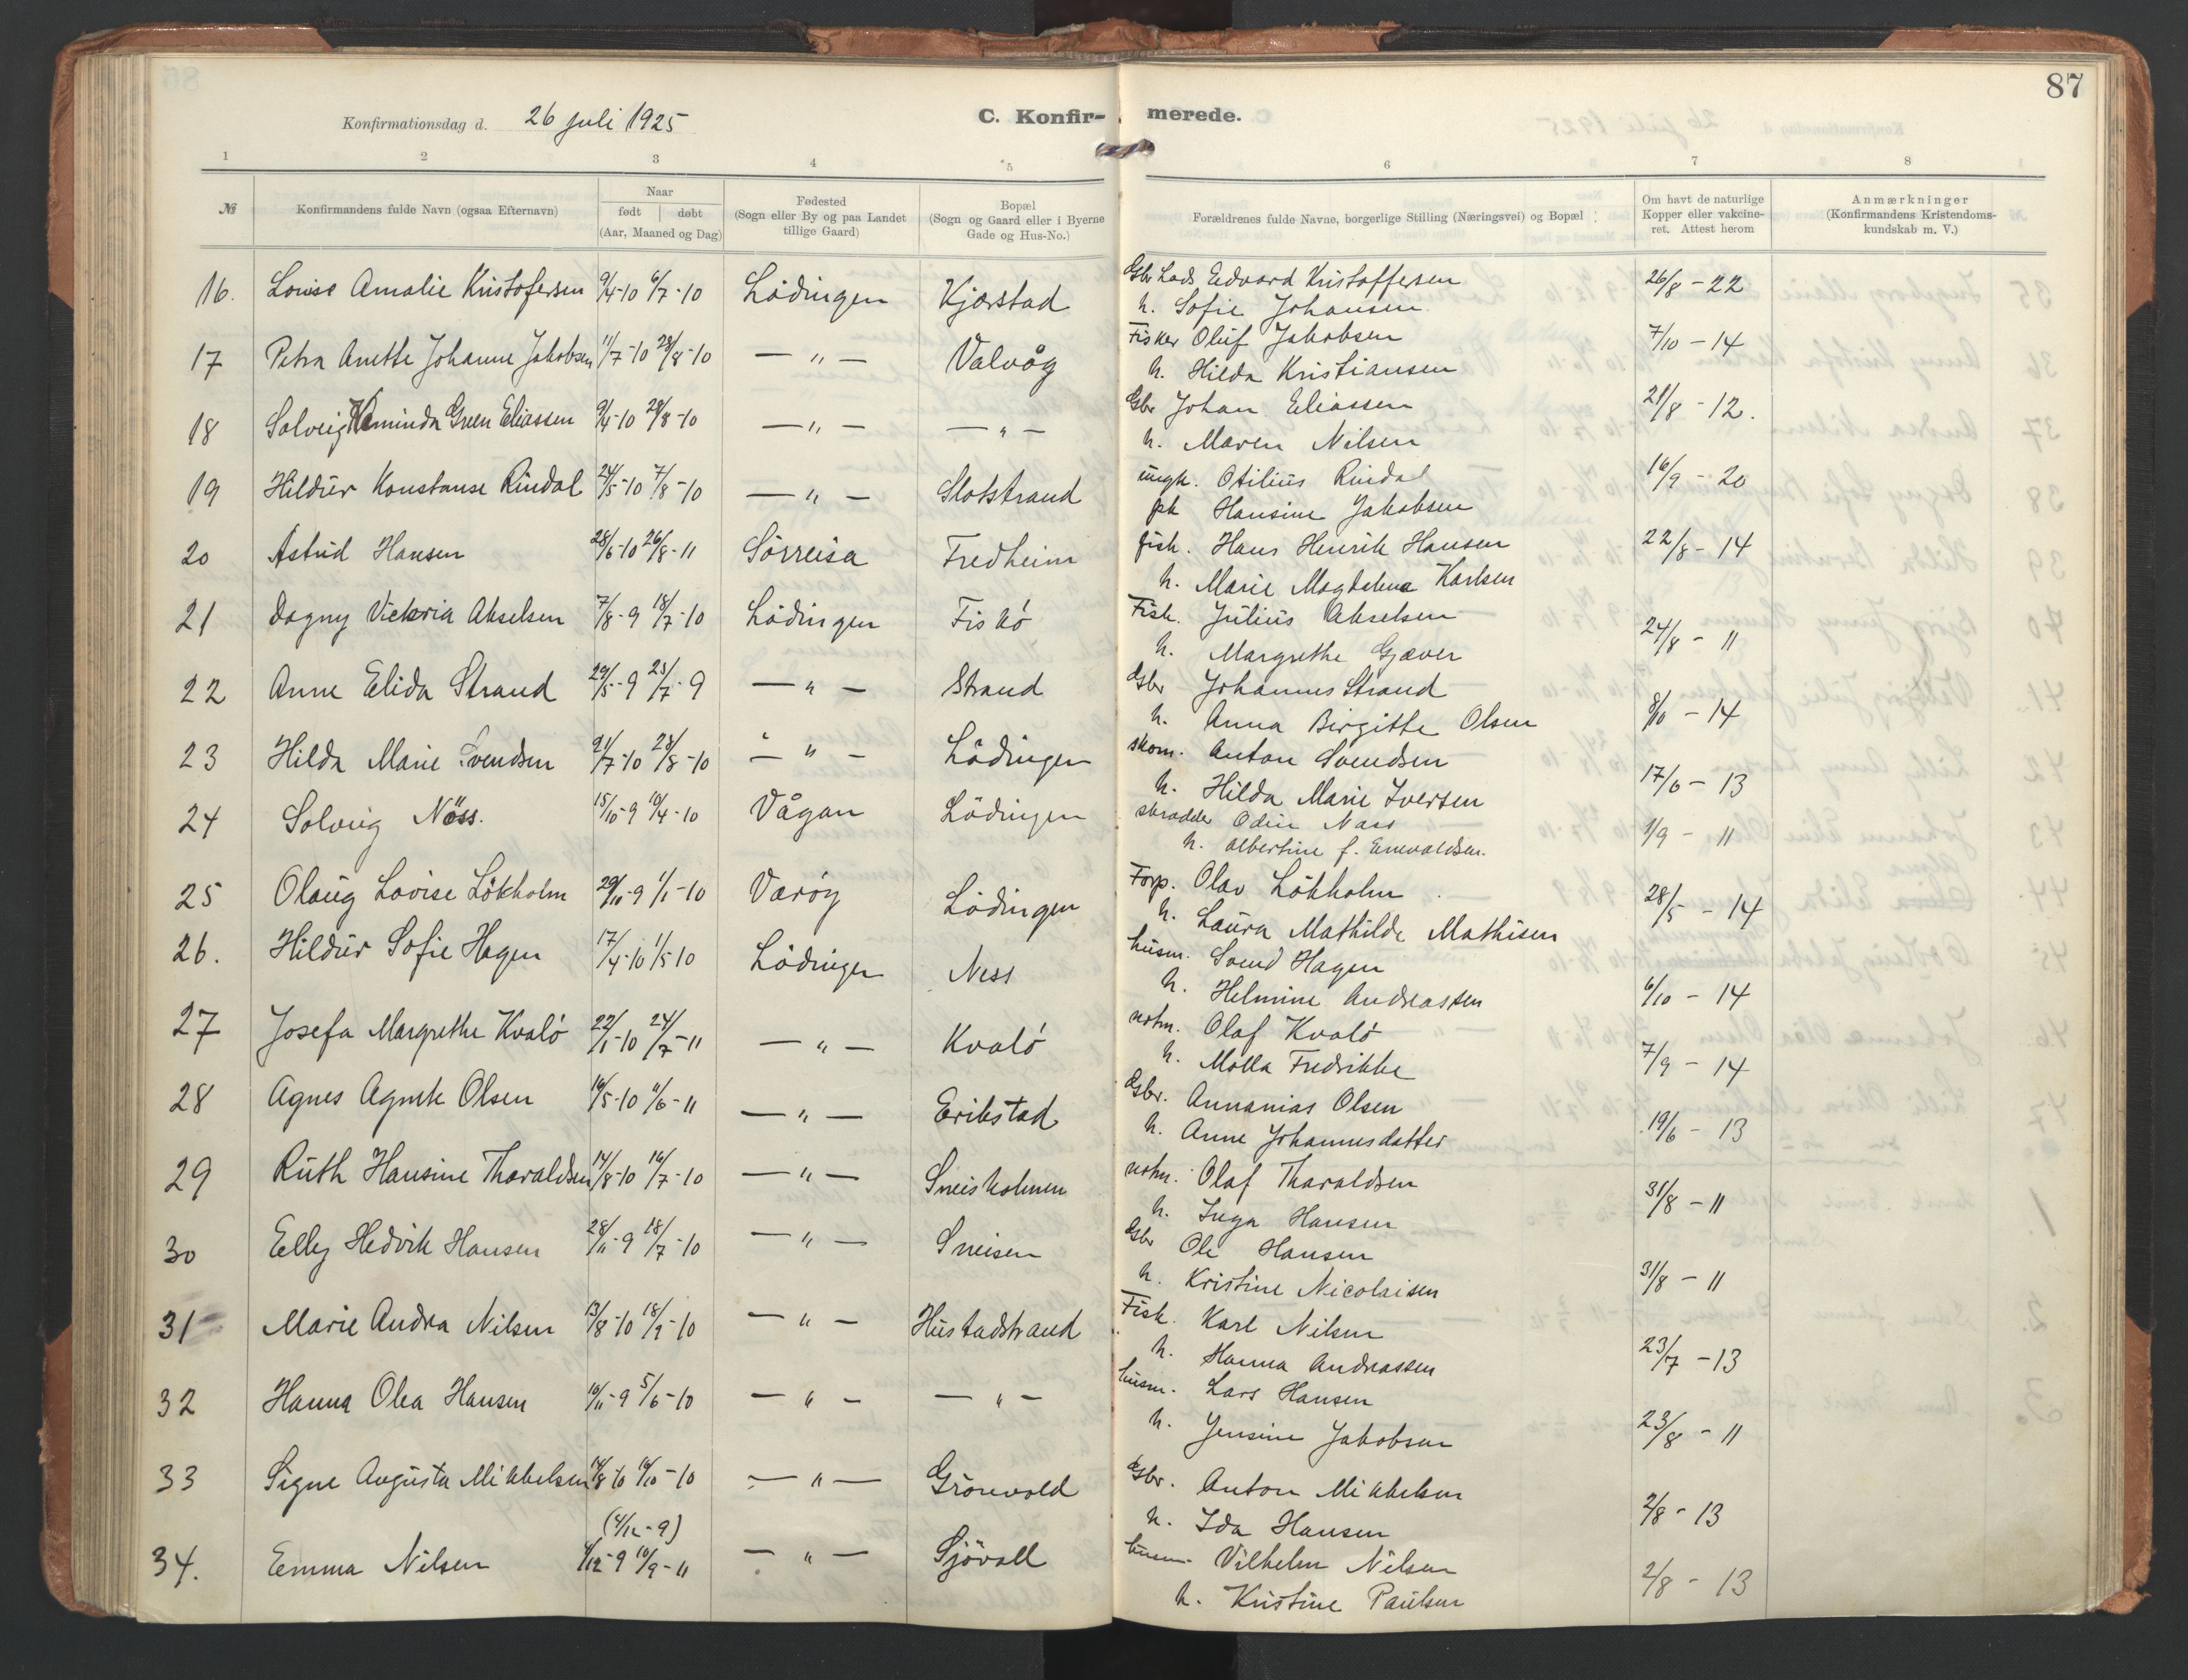 87
Konfirmationsdag d. 26 juli 1925
C. Konfir- merede.
1 2 3 4 5 6 7 8
№
Konfirmandens fulde Navn (ogsaa Efternavn)
Naar
født | døbt
(Aar, Maaned og Dag)
Fødested
(Sogn eller By og paa Landet
tillige Gaard)
Bopæl
(Sogn og Gaard eller i Byerne
Gade og Hus-No.)
Forældrenes fulde Navne, borgerlige Stilling (Næringsvei) og Bopæl
Om havt de naturlige
Kopper eller vakcine-
ret. Attest herom
Anmærkninger
(Konfirmandens Kristendoms-
kundskab m. V.)
16. Louise Amalie Kristofersen 9/4-10 6/7-10 Lödingen Kjærstad Gbr Lads Edvard Kristoffersen 26/8-22
h. Sofie Johansen
17 Petra Anette Johanne Jakobsen 11/7-10 28/8-10 — " — Valvåg Fisker Oluf Jakobsen 7/10-14
h. Hilda Kristiansen
18 Solveig Green Eliassen 9/4-10 28/8-10 — " — — " — Gbr Johan Eliassen 21/8-12.
h. Maren Nilsen
19 Hildur Konstanse Rindal 24/5-10 7/8-10 — " — Slotstrand ungk. Otilius Rindal 16/9-20
pk Hansine Jakobsen
20 Astrid Hansen 28/6-10 26/8-11 Sörreisa Fredheim fisk. Hans Henrik Hansen 22/8-14
h. Marie Magdalena Karlsen
21 Dagny Victoria Akselsen 7/8-9 18/7-10 Lödingen Fiskö Fisk. Julius Akselsen 24/8-11
h. Margrethe Gjæver
22 Anne Elida Strand 29/5-9 25/7-9 — " — Strand Gbr Johannes Strand 8/10-14
h. Anna Birgitte Olsen
23 Hilda Marie Svendsen 21/7-10 28/8-10 — " — Lödingen skom. Anton Svendsen 17/6-13
h. Hilda Marie Iversen
24 Solveig Näss. 15/10-9 10/4-10 Vågan Lödingen skrædder Odin Næss 1/9-11
h. Albertine f. Enevoldsen.
25 Olaug Lovise Lökholm 29/11-9 1/1-10 Værøy Lödingen Forp. Olav Lökholm 28/5-14
h. Laura Mathilde Mathisen
26. Hildur Sofie Hagen 17/4-10 1/5-10 Lödingen Ness husm. Svend Hagen 6/10-14
h. Helmine Andreassen
27 Josefa Margrethe Kvalö 22/1-10 24/7-11 — " — Kvalö notm. Olaf Kvalö 7/9-14
h. Molla Fredrikke
28 Agnes Agnete Olsen 16/5-10 11/6-11 — " — Erikstad Gbr. Annanias Olsen 19/6-13
h. Anne Johannesdatter
29 Ruth Hansine Tharaldsen 14/8-10 16/7-10 — " — Sneisholmen notm. Olaf Tharaldsen 31/8-11
h. Inga Hansen
30 Elly Hedvik Hansen 28/11-9 18/7-10 — " — Sneisen Gbr Ole Hansen 31/8-11
h. Kristine Nicolaisen
31 Marie Andrea Nilsen 13/8-10 18/9-10 — " — Hustadstrand Fisk. Karl Nilsen 23/7-13
h. Hanna Andreassen
32 Hanna Olea Hansen 16/11-9 5/6-10 — " — — " — husm. Lars Hansen 23/8-11
h. Jensine Jakobsen
33 Signe Augusta Mikkelsen 14/8-10 16/10-10 — " — Grönvold Gbr. Anton Mikkelsen 2/8-13
h. Ida Hansen
(4/12-9)
34. Emma Nilsen 4/12-9 10/9-11 — " — Sjövoll husm Vilhelm Nilsen 2/8-13
h. Kristine Paulsen